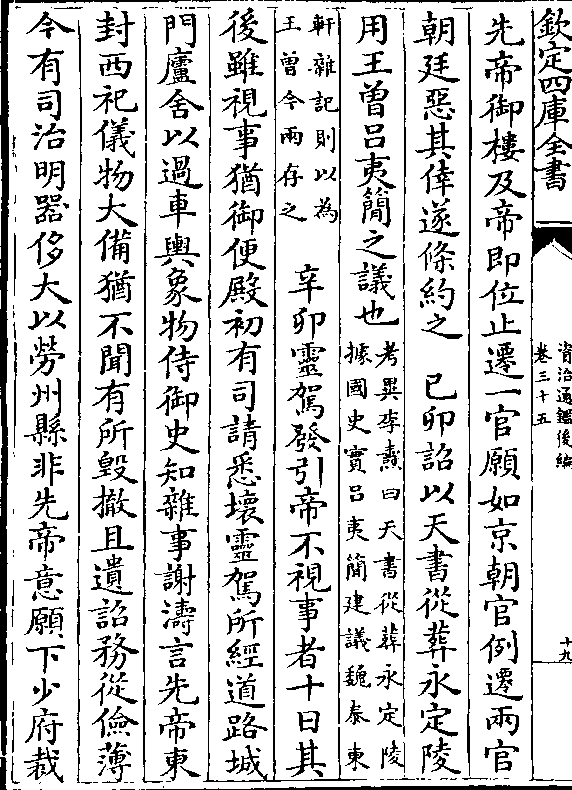 欽定四庫全書
資治通鑑後編
卷三十五
十九
先帝御樓及帝即位止遷一官願如京朝官例遷兩官
朝廷惡其倖遂條約之　己卯詔以天書從葬永定陵
用王曾吕夷簡之議也考異李燾曰天書從葬永定陵
據國史實吕夷簡建議魏泰東
軒雜記則以為
王曾今兩存之　辛卯靈駕發引帝不視事者十日其
後雖視事猶御便殿初有司請悉壞靈駕所經道路城
門廬舍以過車輿象物侍御史知雜事謝濤言先帝東
封西祀儀物大備猶不聞有所毀撤且遺詔務從儉薄
今有司治明器侈大以勞州縣非先帝意願下少府裁